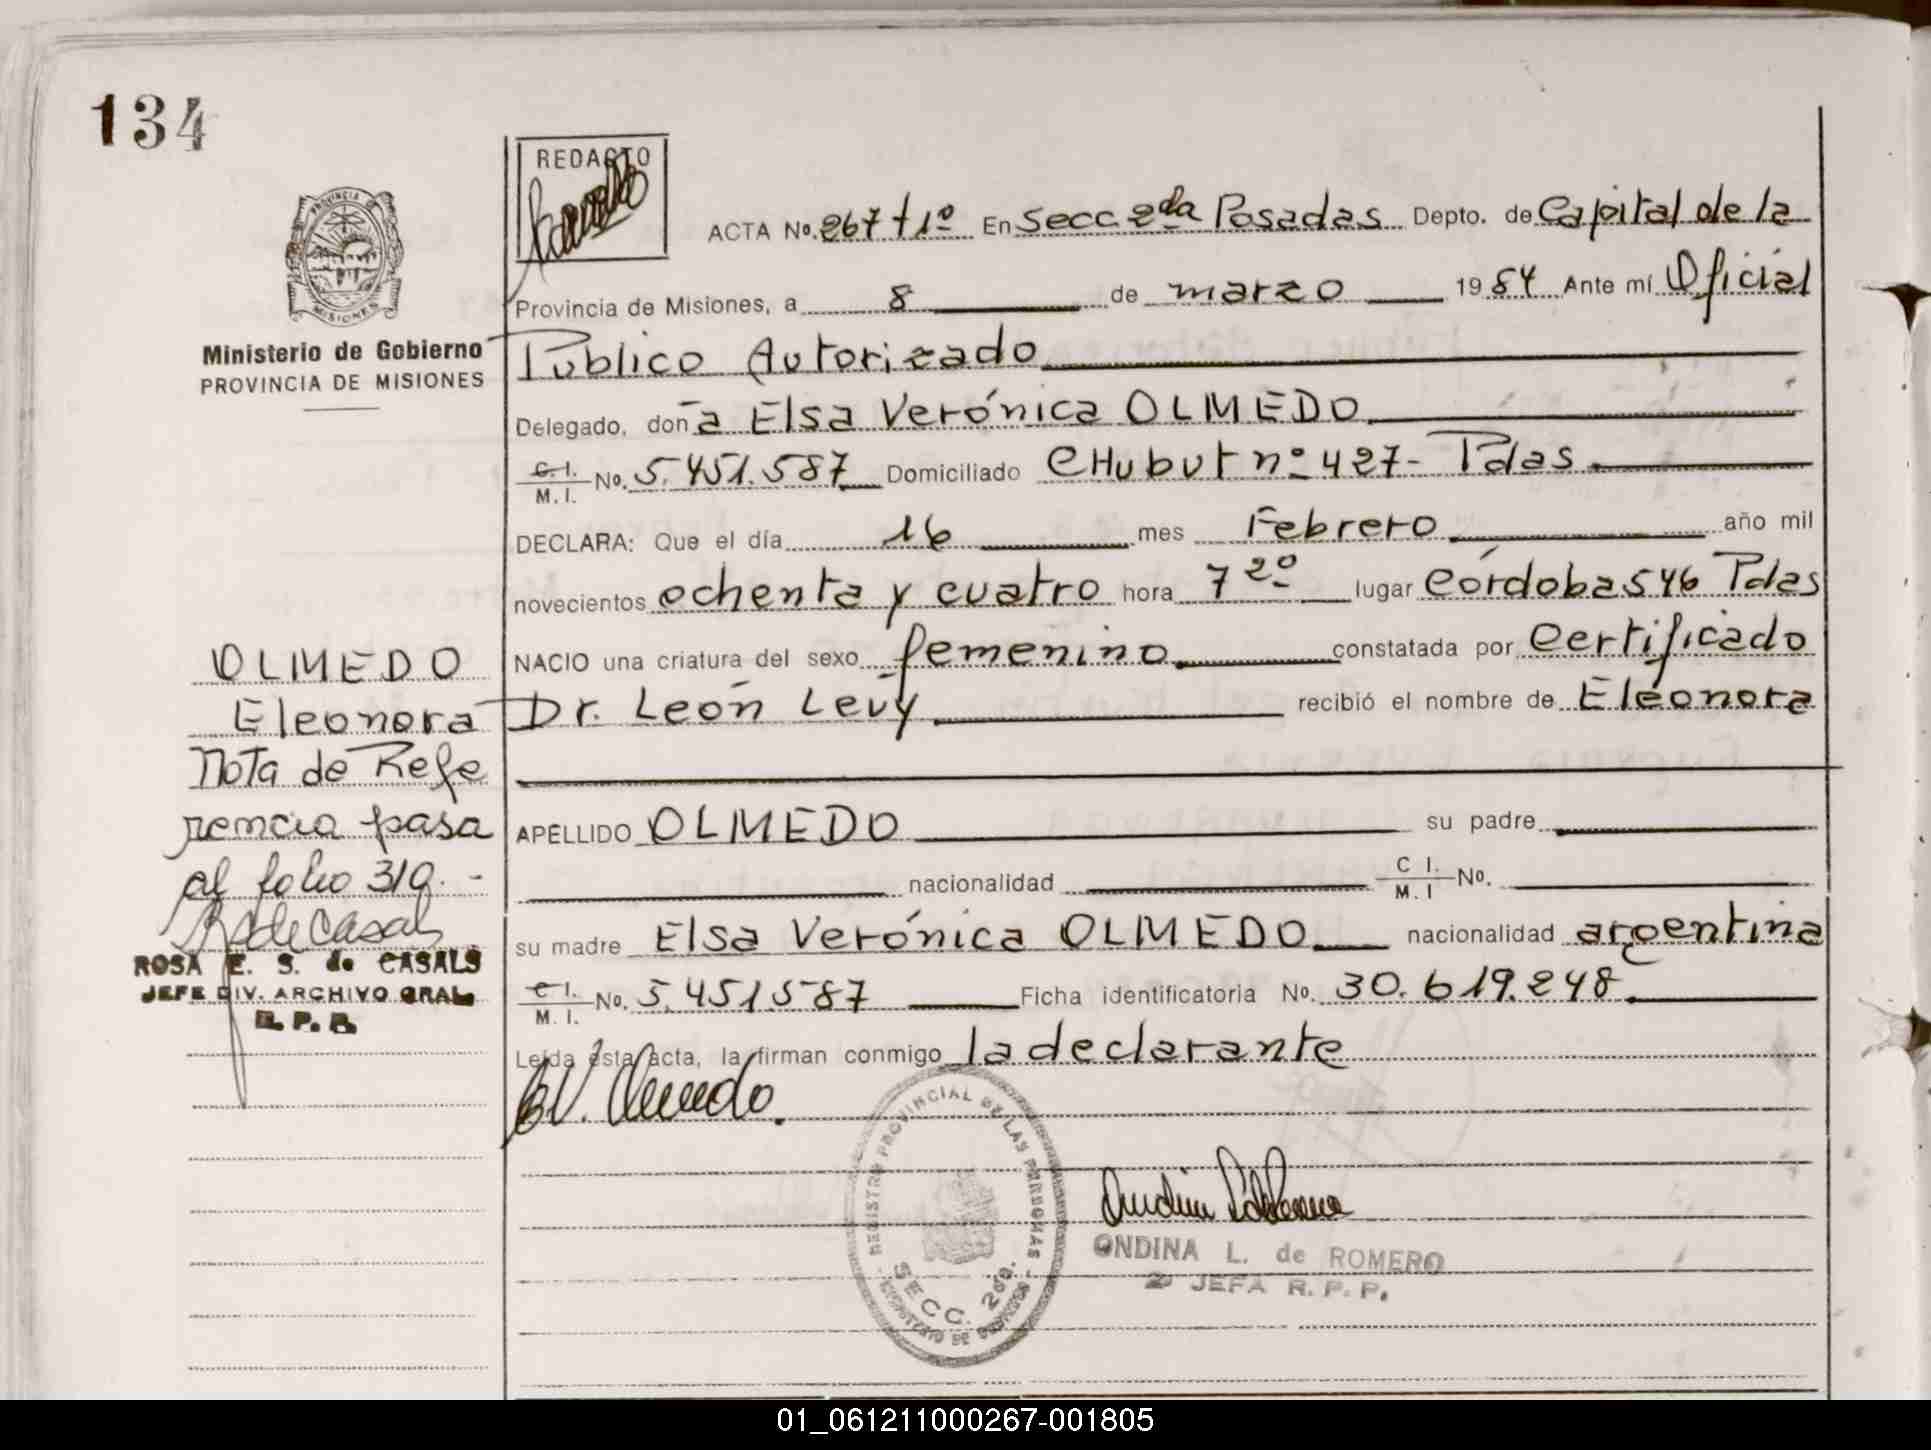 134
REDACTO
ACTA No. 267 t 1º En Secc 2da Posadas Depto. de Capital de la
PROVINCIA DE MISIONES
Provincia de Misiones, a 8 de marzo 1984 Ante mí Oficial
Ministerio de Gobierno
PROVINCIA DE MISIONES
Público Autorizado
Delegado, doña Elsa Verónica OLMEDO
C.I. M.I. No. 5.451.587 Domiciliado CHubut nº 427- Pdas
DECLARA: Que el día 16 mes Febrero año mil
novecientos ochenta y cuatro hora 7 20 lugar Córdoba 546 Pdas
NACIO una criatura del sexo femenino constatada por Certificado
Dr. León Levy recibió el nombre de Eleonora
APELLIDO OLMEDO su padre
nacionalidad C I. M. I No.
su madre Elsa Verónica OLMEDO nacionalidad argentina
C I. M. I. No. 5.451587 Ficha identificatoria No. 30.619.248
Leída esta acta, la firman conmigo la declarante
EV. Olmedo.
OLMEDO
Eleonora
Nota de Refe
rencia pasa
al folio 310.-
R de Casals
ROSA E. S. de CASALS
JEFE DIV. ARCHIVO GRAL.
R. P. P.
REGISTRO PROVINCIAL DE LAS PERSONAS
SECC. 2da.
ONDINA L. de ROMERO
2º JEFA R. P. P.
01_061211000267-001805